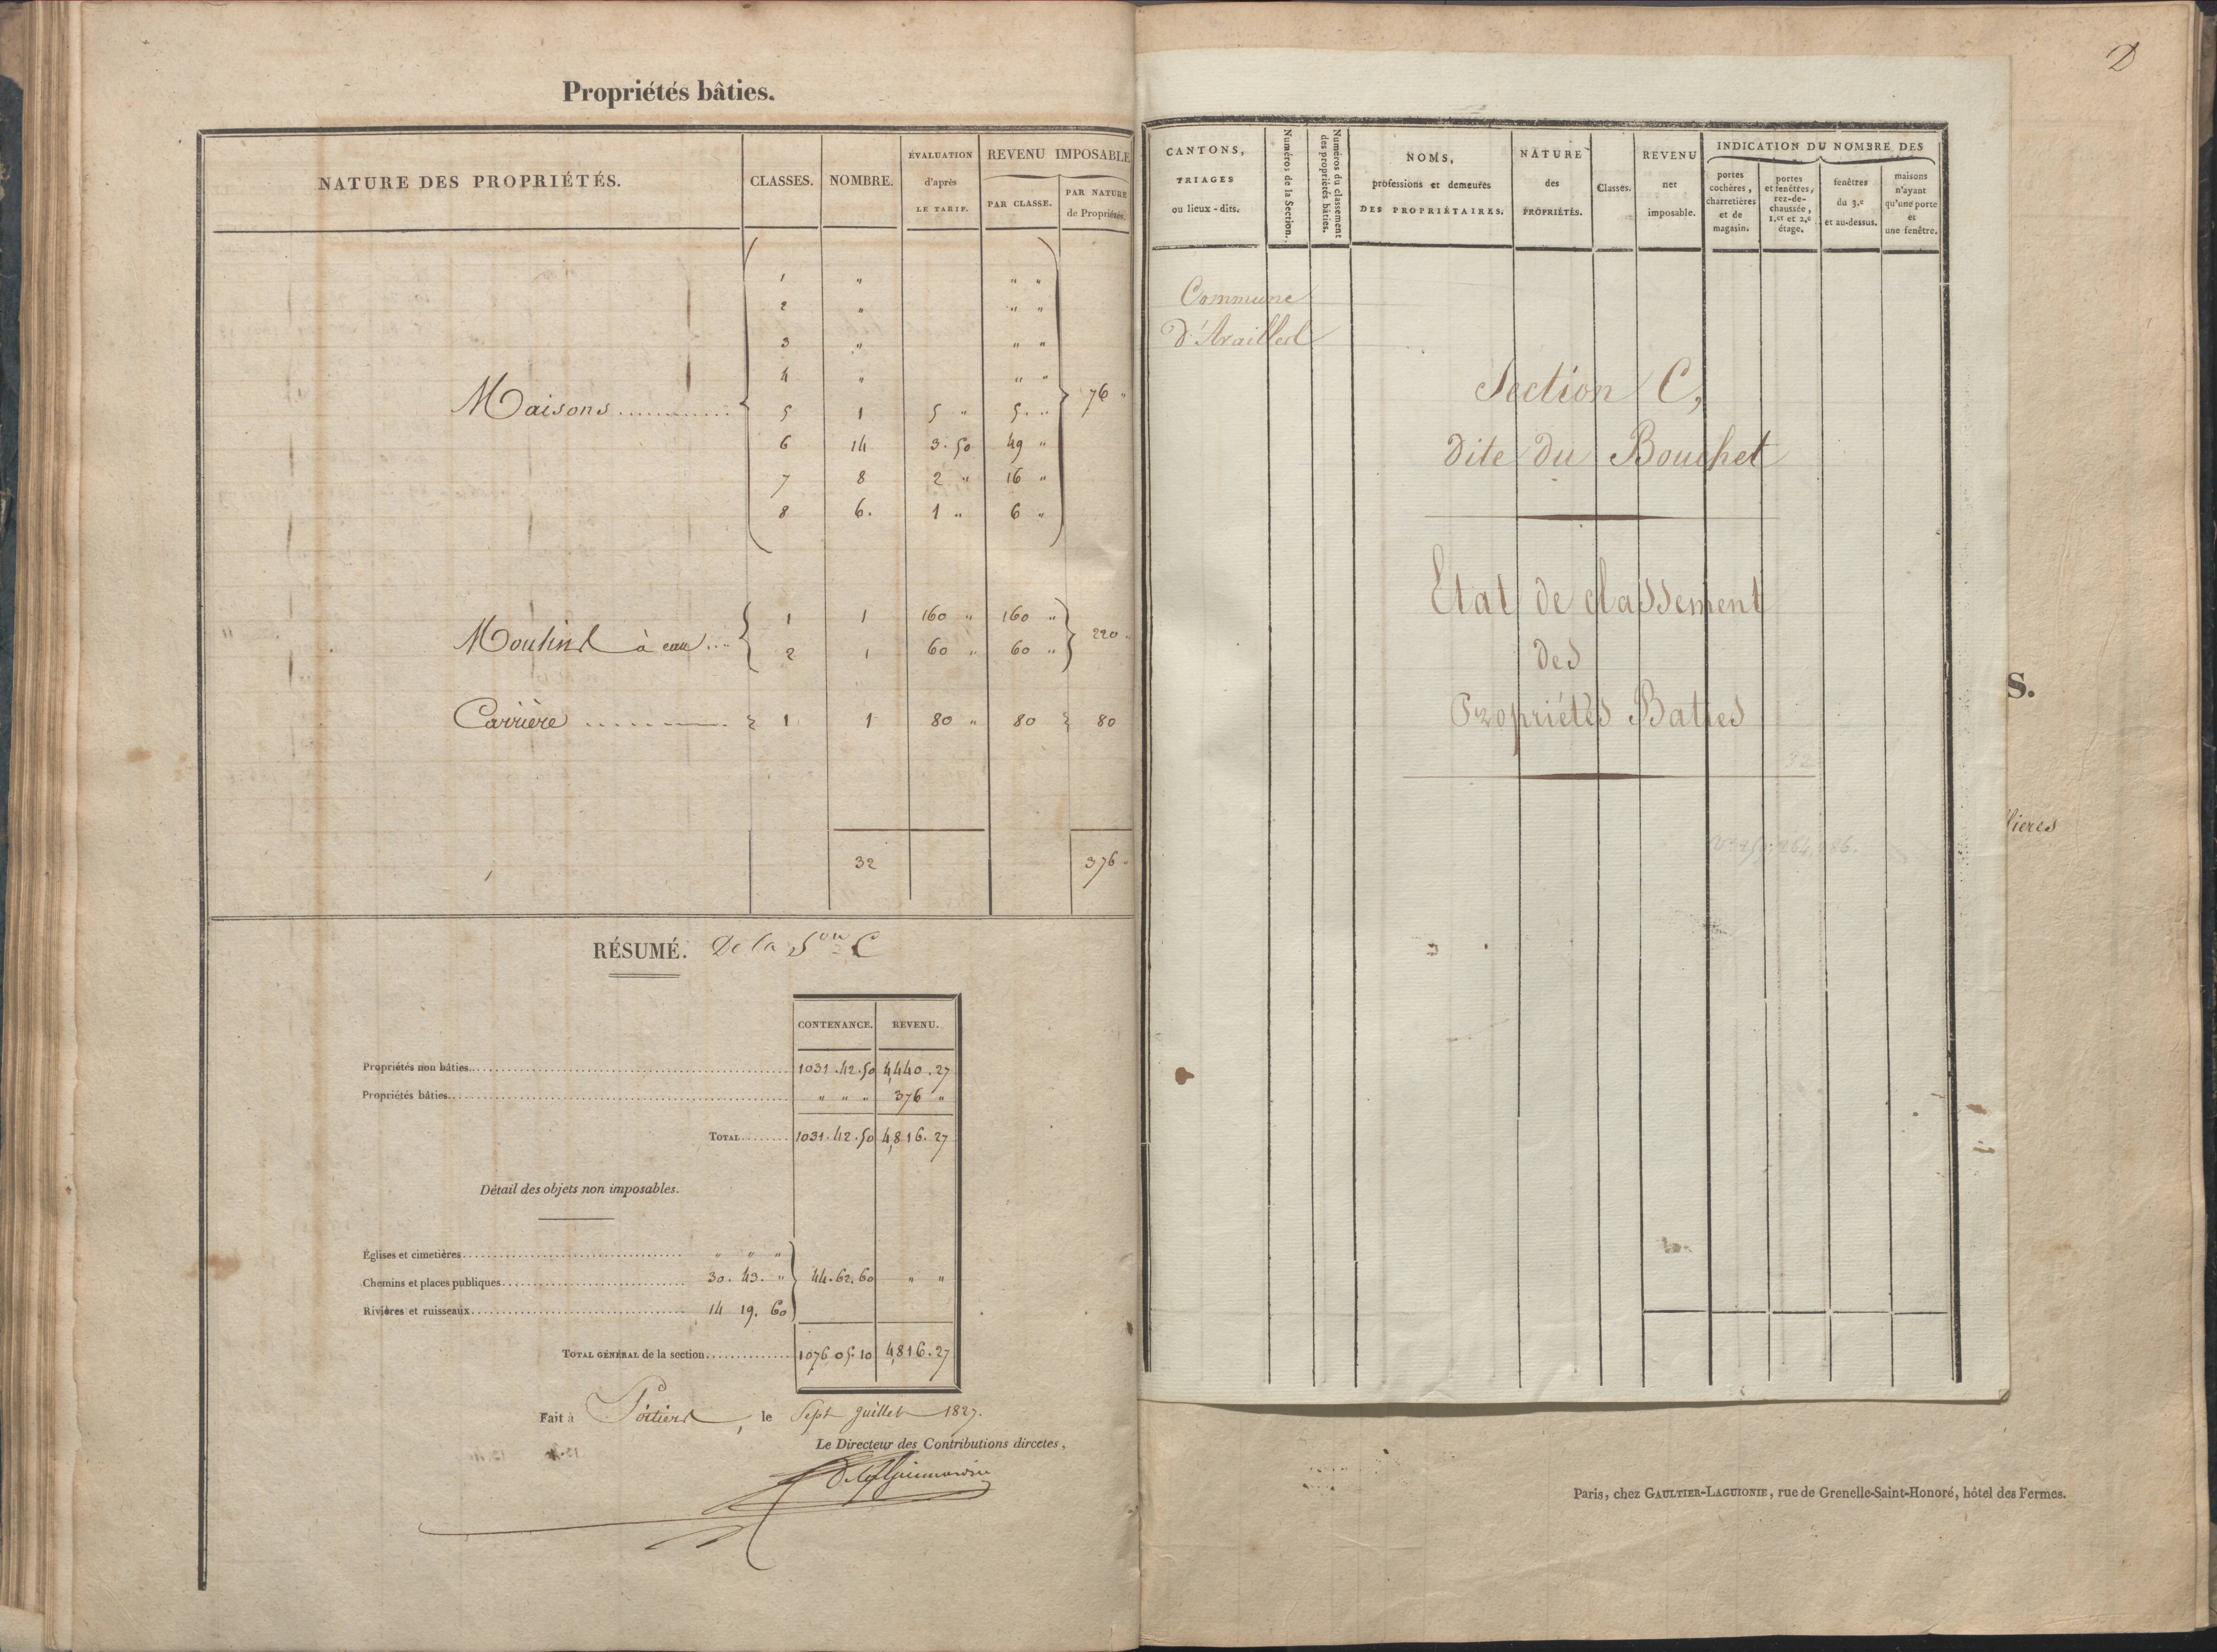 Propriétés bâties.
NATURE DES PROPRIÉTÉS. CLASSES. NOMBRE. ÉVALUATION d'après LE TARIF. REVENU IMPOSABLE PAR CLASSE. PAR NATURE de Propriétés.
1 " " "
2 " " "
3 " " "
4 " " "
Maisons ............ 5 1 5 " 5 " 76 "
6 14 3.50 49 "
7 8 2 " 16 "
8 6. 1 " 6 "
Moulins à eau .... 1 1 160 " 160 " 220 "
2 1 60 " 60 "
Carrière ............ 1 1 80 " 80 80
32 376 "
RÉSUMÉ. De la Son C
CONTENANCE. REVENU.
Propriétés non bâties. 1031.42.50 4,440.27
Propriétés bâties. " " " 376 "
TOTAL 1031.42.50 4,816.27
Détail des objets non imposables.
Églises et cimetières " " "
Chemins et places publiques 30. 43. " 44.62.60 " "
Rivières et ruisseaux 14 19. 60
TOTAL GÉNÉRAL de la section 1076 05 10 4,816.27
Fait à Poitiers, le Sept juillet 1827.
Le Directeur des Contributions directes,
D
CANTONS, TRIAGES ou lieux-dits.
Numéros de la Section.
Numéros du classement des propriétés bâties.
NOMS, professions et demeures DES PROPRIÉTAIRES.
NATURE des PROPRIÉTÉS.
Classes.
REVENU net imposable.
INDICATION DU NOMBRE DES
portes cochères, charretières et de magasin.
portes et fenêtres, rez-de-chaussée, 1.er et 2.e étage.
fenêtres du 3.e et au-dessus.
maisons n'ayant qu'une porte et une fenêtre.
Commune
d'Availles
Section C,
dite du Bouchet
Etat de classement
des
Propriétés Baties
32
S.
lieres
Paris, chez GAULTIER-LAGUIONIE, rue de Grenelle-Saint-Honoré, hôtel des Fermes.